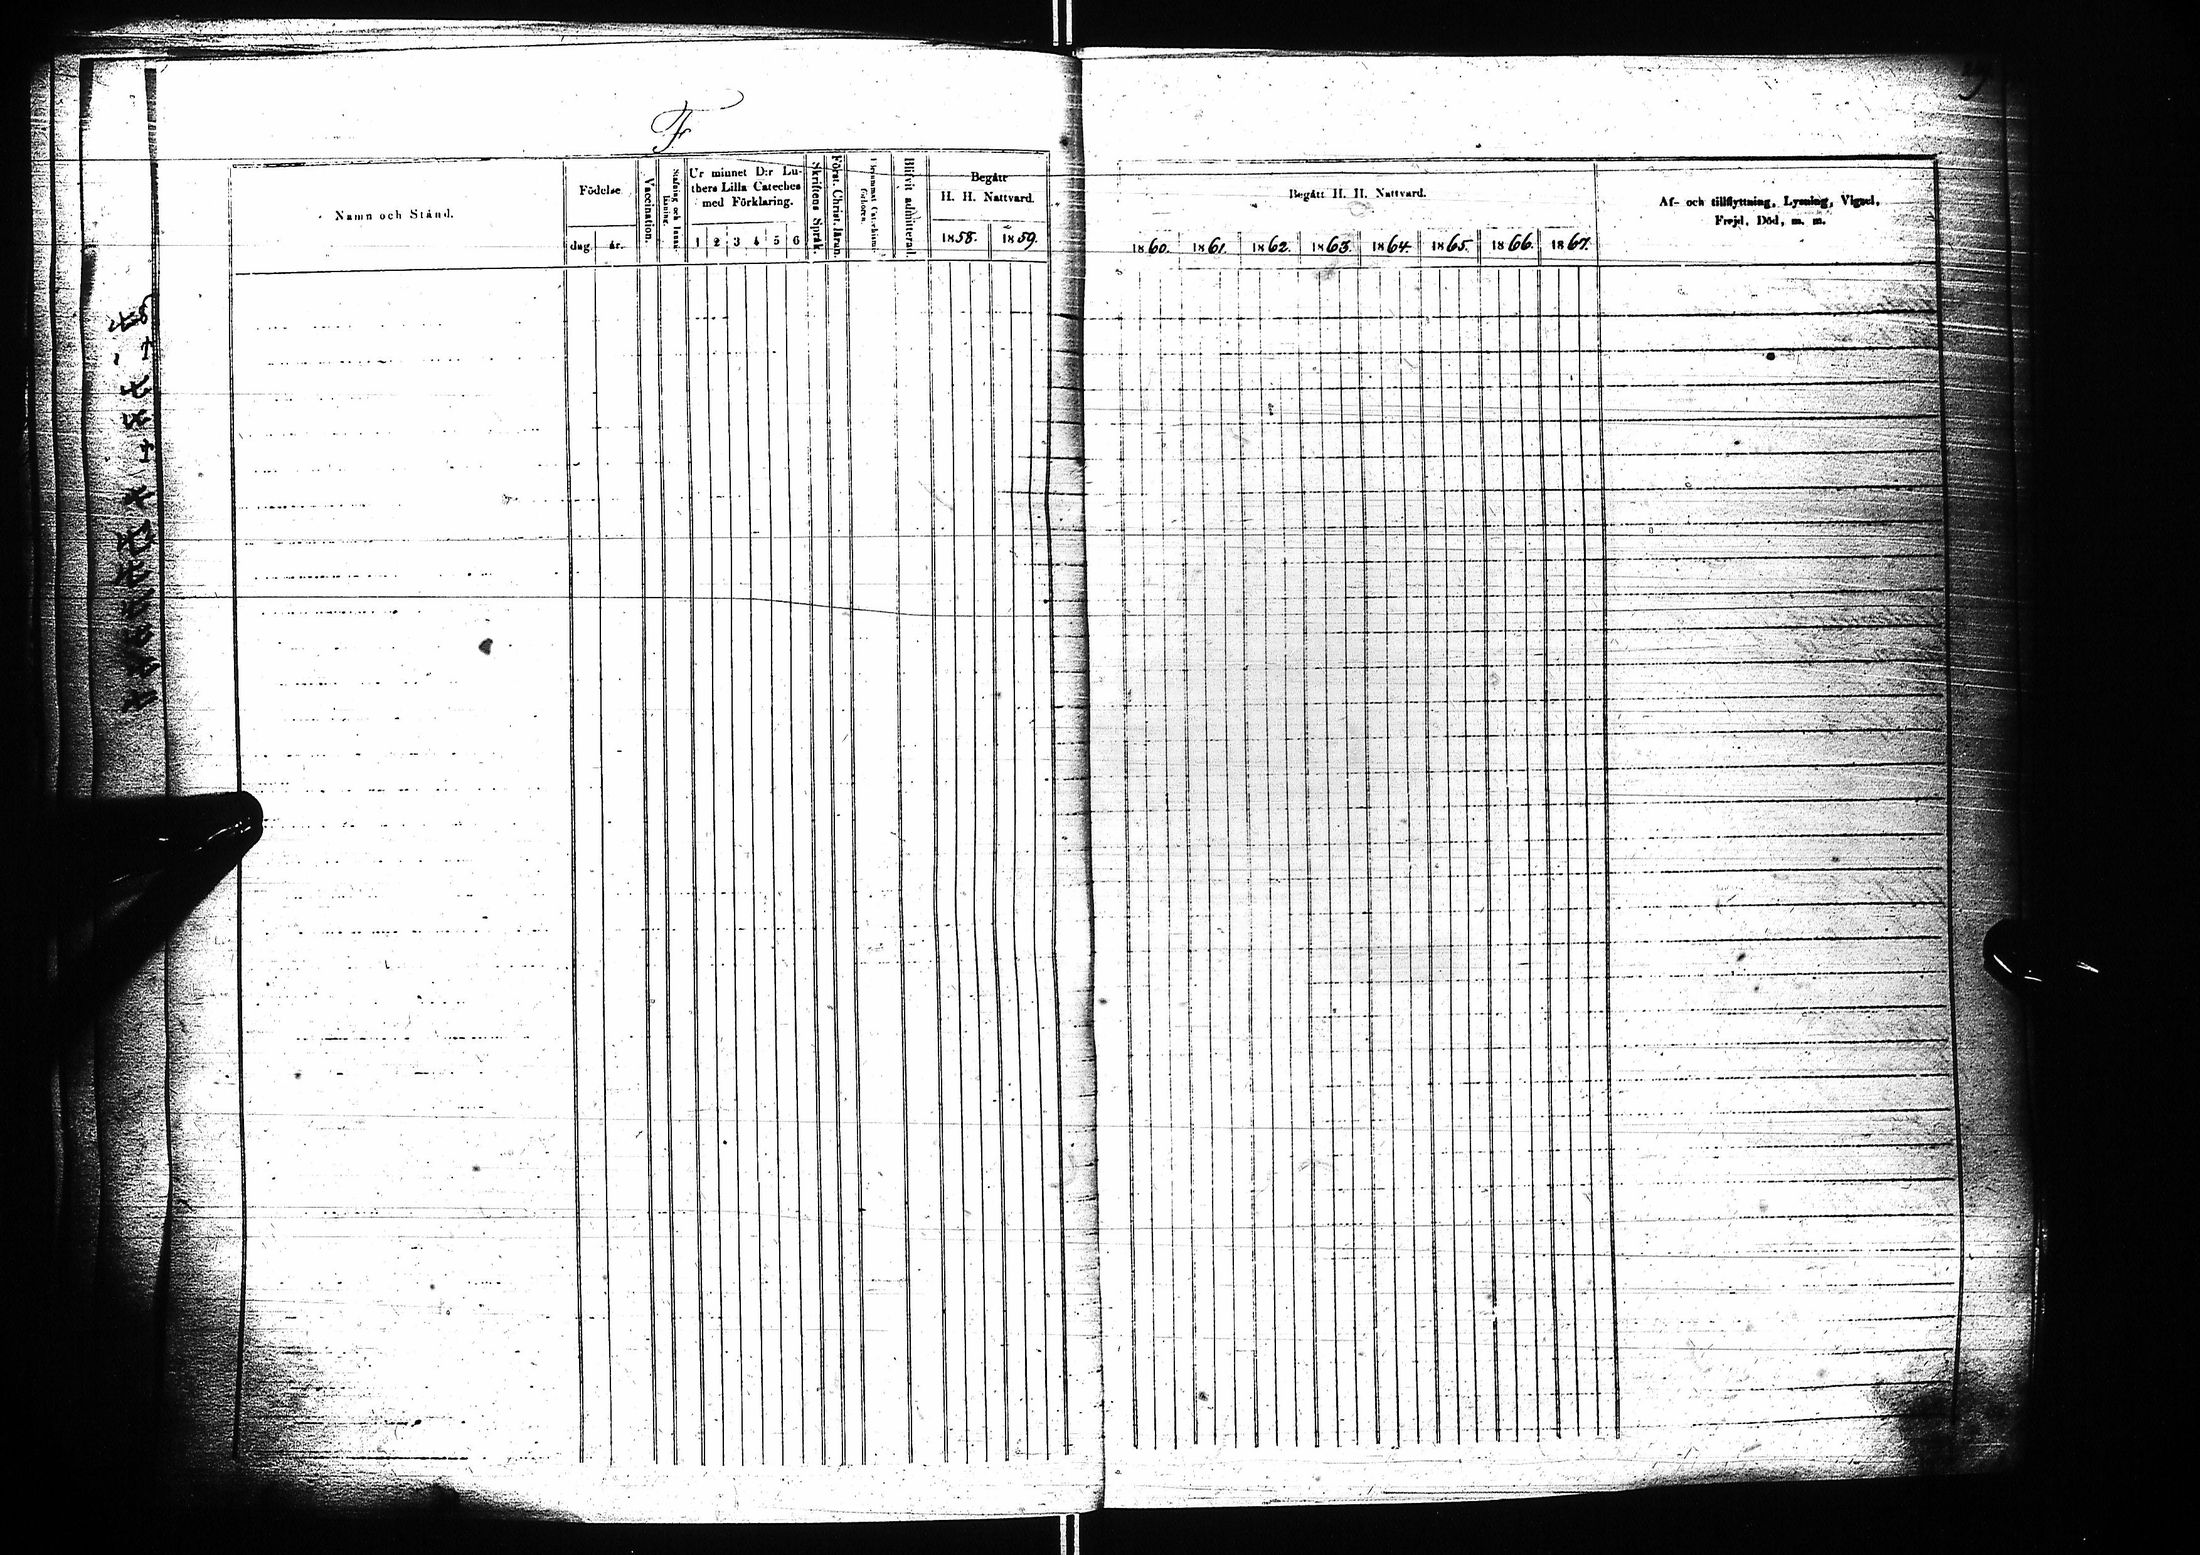 F.
Namn och Stånd.
Födelse
dag. år.
Vaccination.
Stafning och Innanläsning.
Ur minnet D:r Luthers Lilla Cateches med Förklaring.
1 2 3 4 5 6
Skriftens Språk.
Först. Christ. läran.
Blifvit admitterad.
Begått
H. H. Nattvard.
1858. 1859.
Begått H. H. Nattvard.
1860. 1861. 1862. 1863. 1864. 1865. 1866. 1867.
Af- och tillflyttning, Lysning, Vigsel,
Frejd, Död, m. m.